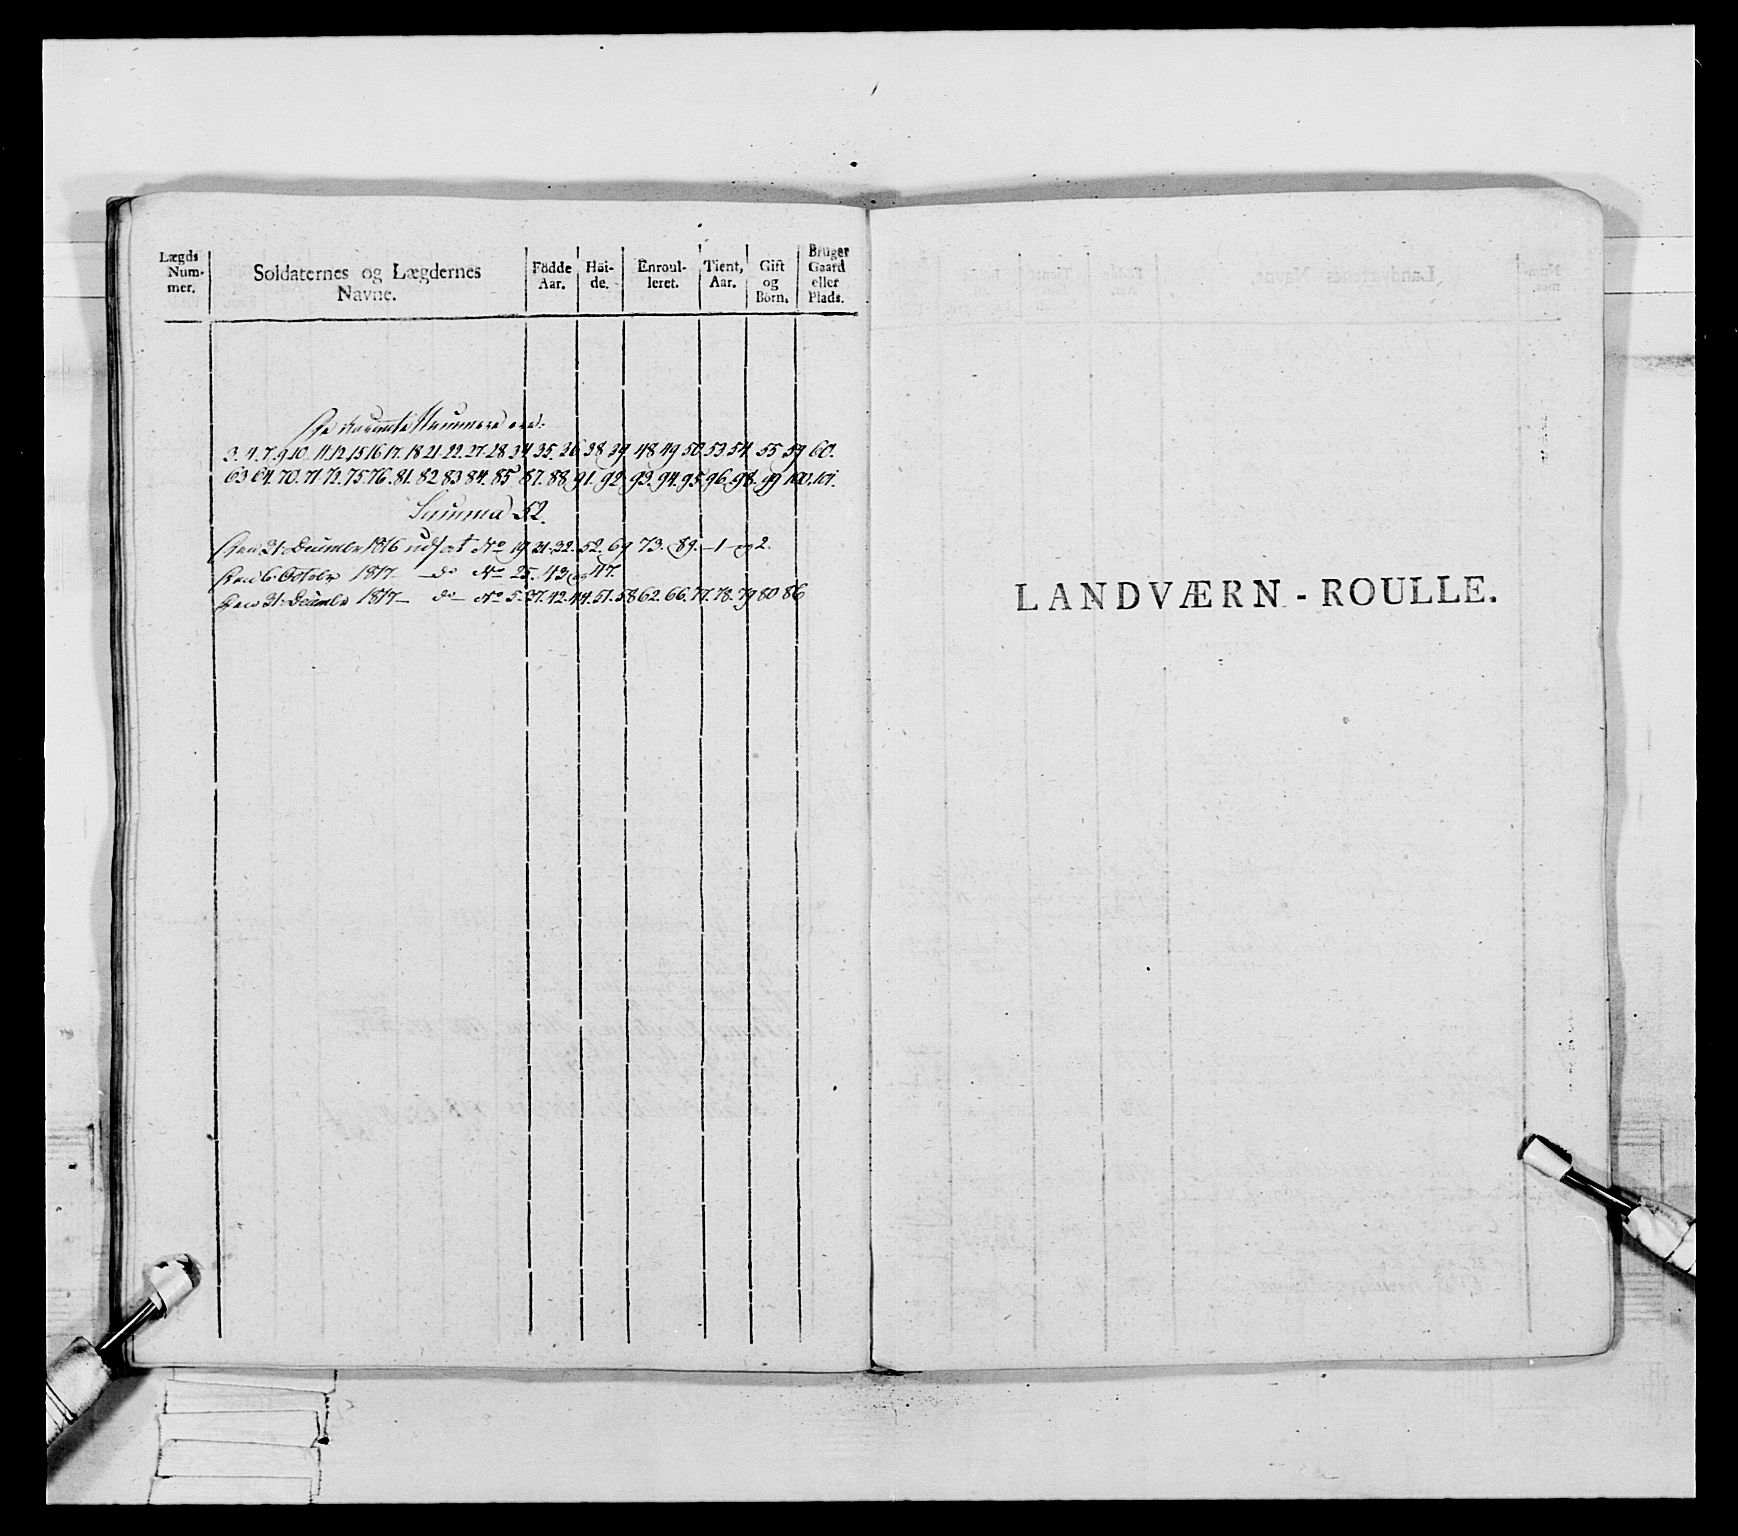 Lægds Num- mer.
Soldaternes og Lægdernes Navne.
Födde Aar.
Høi- de.
Enroul- leret.
Tient, Aar.
Gift og Börn.
Bruger Gaard eller Plads.
De vacante Nummere ere:
3. 4. 7. 9. 10. 11. 12. 15. 16. 17. 18. 21. 22. 27. 28. 34. 35. 36. 38. 39. 48. 49. 50. 53. 54. 55. 59. 60.
63. 64. 70. 71. 72. 75. 76. 81. 82. 83. 84. 85. 87. 88. 91. 92. 93. 94. 95. 96. 98. 99. 100. 101.
Summa 52.
Den 31. December 1816 udsat No 19. 31. 32. 52. 69. 73. 89. -1- og 2.
Den 6. October 1817 - do No 25. 43 og 47.
Den 31. December 1817 - do - No 5. 37. 42. 44. 51. 58. 62. 66. 77. 78. 79. 80. 86
LANDVÆRN - ROULLE.